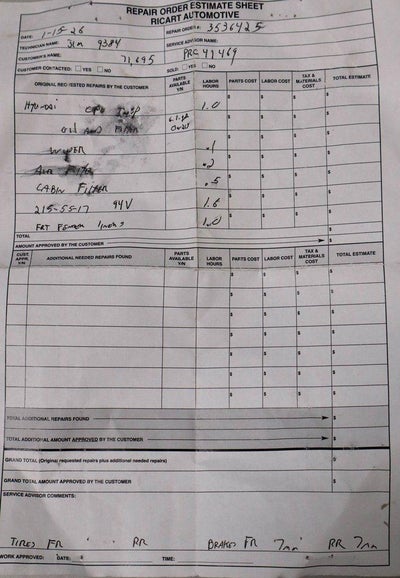 REPAIR ORDER ESTIMATE SHEET
RICART AUTOMOTIVE
DATE: 1-15-26 REPAIR ORDER #: 3536425
TECHNICIAN NAME: Jim 9384 SERVICE ADVISOR NAME:
CUSTOMER'S NAME: 71,695 PRC 41469
CUSTOMER CONTACTED: YES NO SOLD: YES NO
ORIGINAL REQUESTED REPAIRS BY THE CUSTOMER PARTS AVAILABLE Y/N LABOR HOURS PARTS COST LABOR COST TAX & MATERIALS COST TOTAL ESTIMATE
Hyundai CPO Insp 1.0 $ $ $ $
Oil and Filter $ $ $ $
Wiper .1 $ $ $ $
Air Filter .2 $ $ $ $
Cabin Filter .5 $ $ $ $
215-55-17 94V 1.6 $ $ $ $
FRT 1.0 $ $ $ $
TOTAL $
AMOUNT APPROVED BY THE CUSTOMER $
CUST. APPR. Y/N ADDITIONAL NEEDED REPAIRS FOUND PARTS AVAILABLE Y/N LABOR HOURS PARTS COST LABOR COST TAX & MATERIALS COST TOTAL ESTIMATE
$ $ $ $
$ $ $ $
$ $ $ $
$ $ $ $
$ $ $ $
$ $ $ $
$ $ $ $
TOTAL ADDITIONAL REPAIRS FOUND $
TOTAL ADDITIONAL AMOUNT APPROVED BY THE CUSTOMER $
GRAND TOTAL (Original requested repairs plus additional needed repairs) $
GRAND TOTAL AMOUNT APPROVED BY THE CUSTOMER $
SERVICE ADVISOR COMMENTS:
TIRES FR RR BRAKES FR 7mm RR 7mm
WORK APPROVED: DATE: TIME: